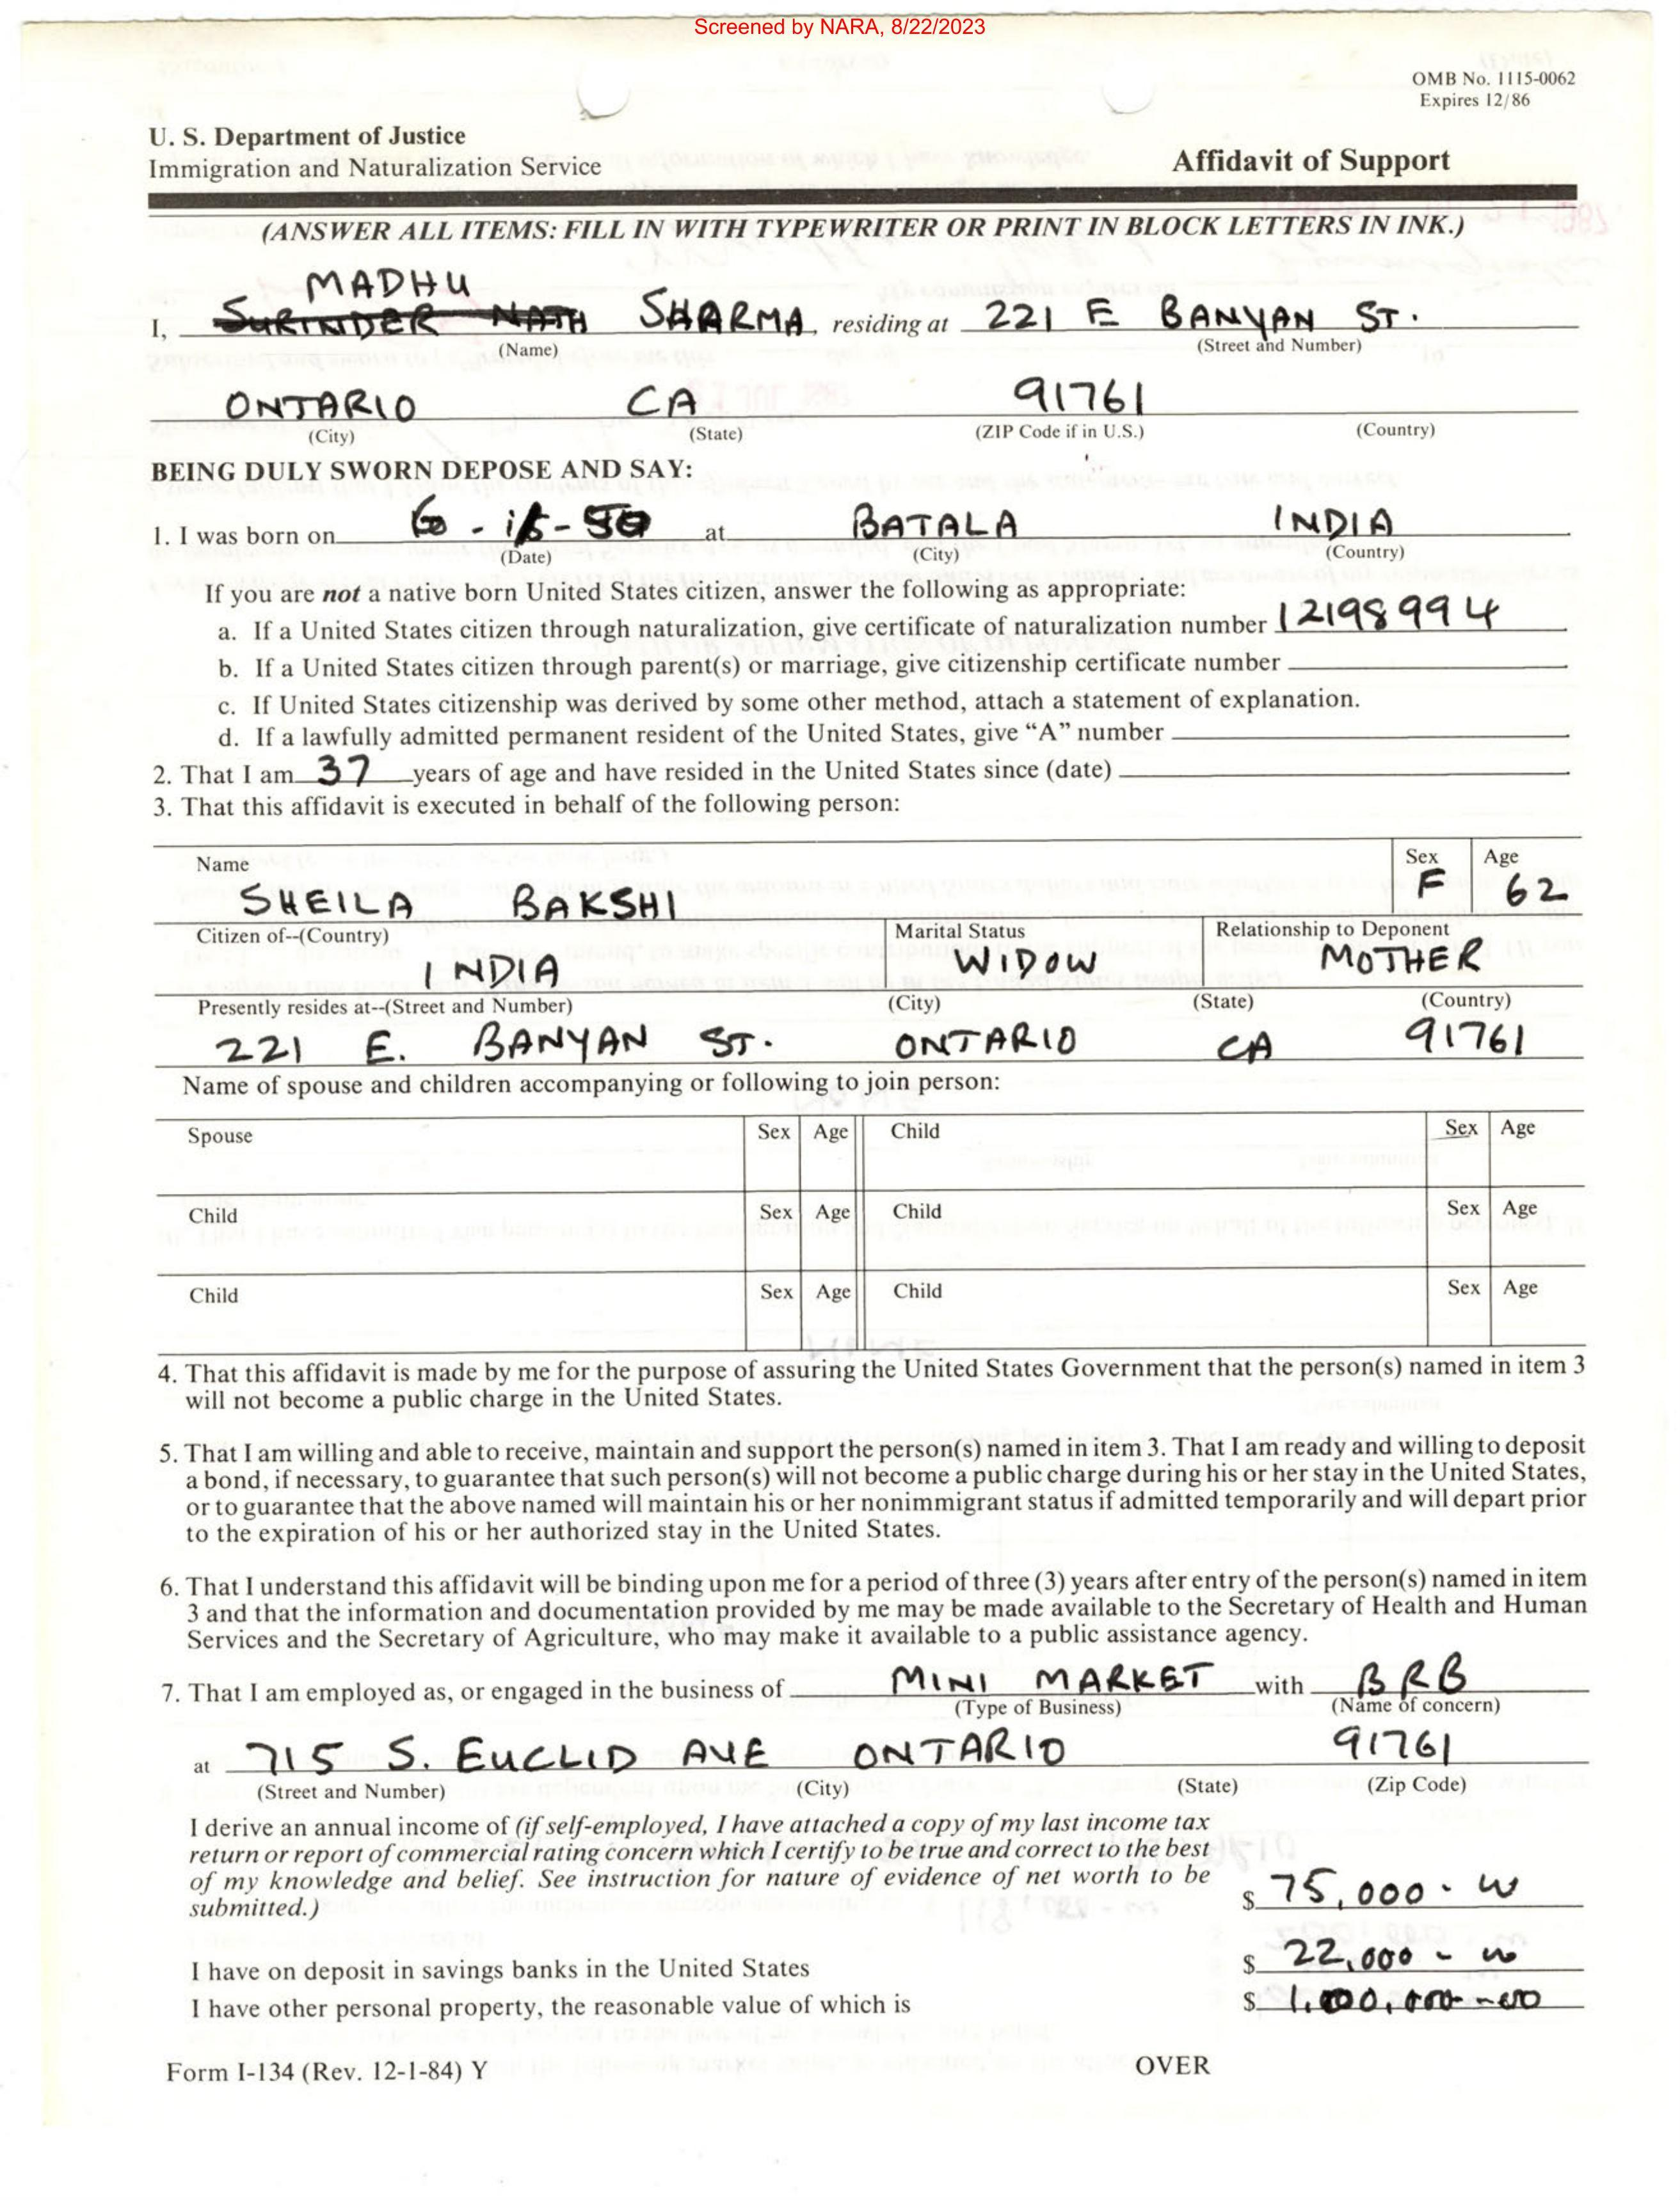 Screened by NARA, 8/22/2023
OMB No. 1115-0062
Expires 12/86
U. S. Department of Justice
Immigration and Naturalization Service
Affidavit of Support
(ANSWER ALL ITEMS: FILL IN WITH TYPEWRITER OR PRINT IN BLOCK LETTERS IN INK.)
MADHU
I, SURINDER NATH SHARMA, residing at 221 E BANYAN ST.
(Name) (Street and Number)
ONTARIO CA 91761
(City) (State) (ZIP Code if in U.S.) (Country)
BEING DULY SWORN DEPOSE AND SAY:
1. I was born on at BATALA INDIA
(Date) (City) (Country)
If you are not a native born United States citizen, answer the following as appropriate:
a. If a United States citizen through naturalization, give certificate of naturalization number 12198994
b. If a United States citizen through parent(s) or marriage, give citizenship certificate number
c. If United States citizenship was derived by some other method, attach a statement of explanation.
d. If a lawfully admitted permanent resident of the United States, give “A” number
2. That I am 37 years of age and have resided in the United States since (date)
3. That this affidavit is executed in behalf of the following person:
Name Sex Age
SHEILA BAKSHI F 62
Citizen of--(Country) Marital Status Relationship to Deponent
INDIA WIDOW MOTHER
Presently resides at--(Street and Number) (City) (State) (Country)
221 E. BANYAN ST. ONTARIO CA 91761
Name of spouse and children accompanying or following to join person:
Spouse Sex Age Child Sex Age
Child Sex Age Child Sex Age
Child Sex Age Child Sex Age
4. That this affidavit is made by me for the purpose of assuring the United States Government that the person(s) named in item 3
will not become a public charge in the United States.
5. That I am willing and able to receive, maintain and support the person(s) named in item 3. That I am ready and willing to deposit
a bond, if necessary, to guarantee that such person(s) will not become a public charge during his or her stay in the United States,
or to guarantee that the above named will maintain his or her nonimmigrant status if admitted temporarily and will depart prior
to the expiration of his or her authorized stay in the United States.
6. That I understand this affidavit will be binding upon me for a period of three (3) years after entry of the person(s) named in item
3 and that the information and documentation provided by me may be made available to the Secretary of Health and Human
Services and the Secretary of Agriculture, who may make it available to a public assistance agency.
7. That I am employed as, or engaged in the business of MINI MARKET with BRB
(Type of Business) (Name of concern)
at 715 S. EUCLID AVE ONTARIO 91761
(Street and Number) (City) (State) (Zip Code)
I derive an annual income of (if self-employed, I have attached a copy of my last income tax
return or report of commercial rating concern which I certify to be true and correct to the best
of my knowledge and belief. See instruction for nature of evidence of net worth to be
submitted.) $ 75,000.
I have on deposit in savings banks in the United States $ 22,000 -
I have other personal property, the reasonable value of which is $
Form I-134 (Rev. 12-1-84) Y OVER